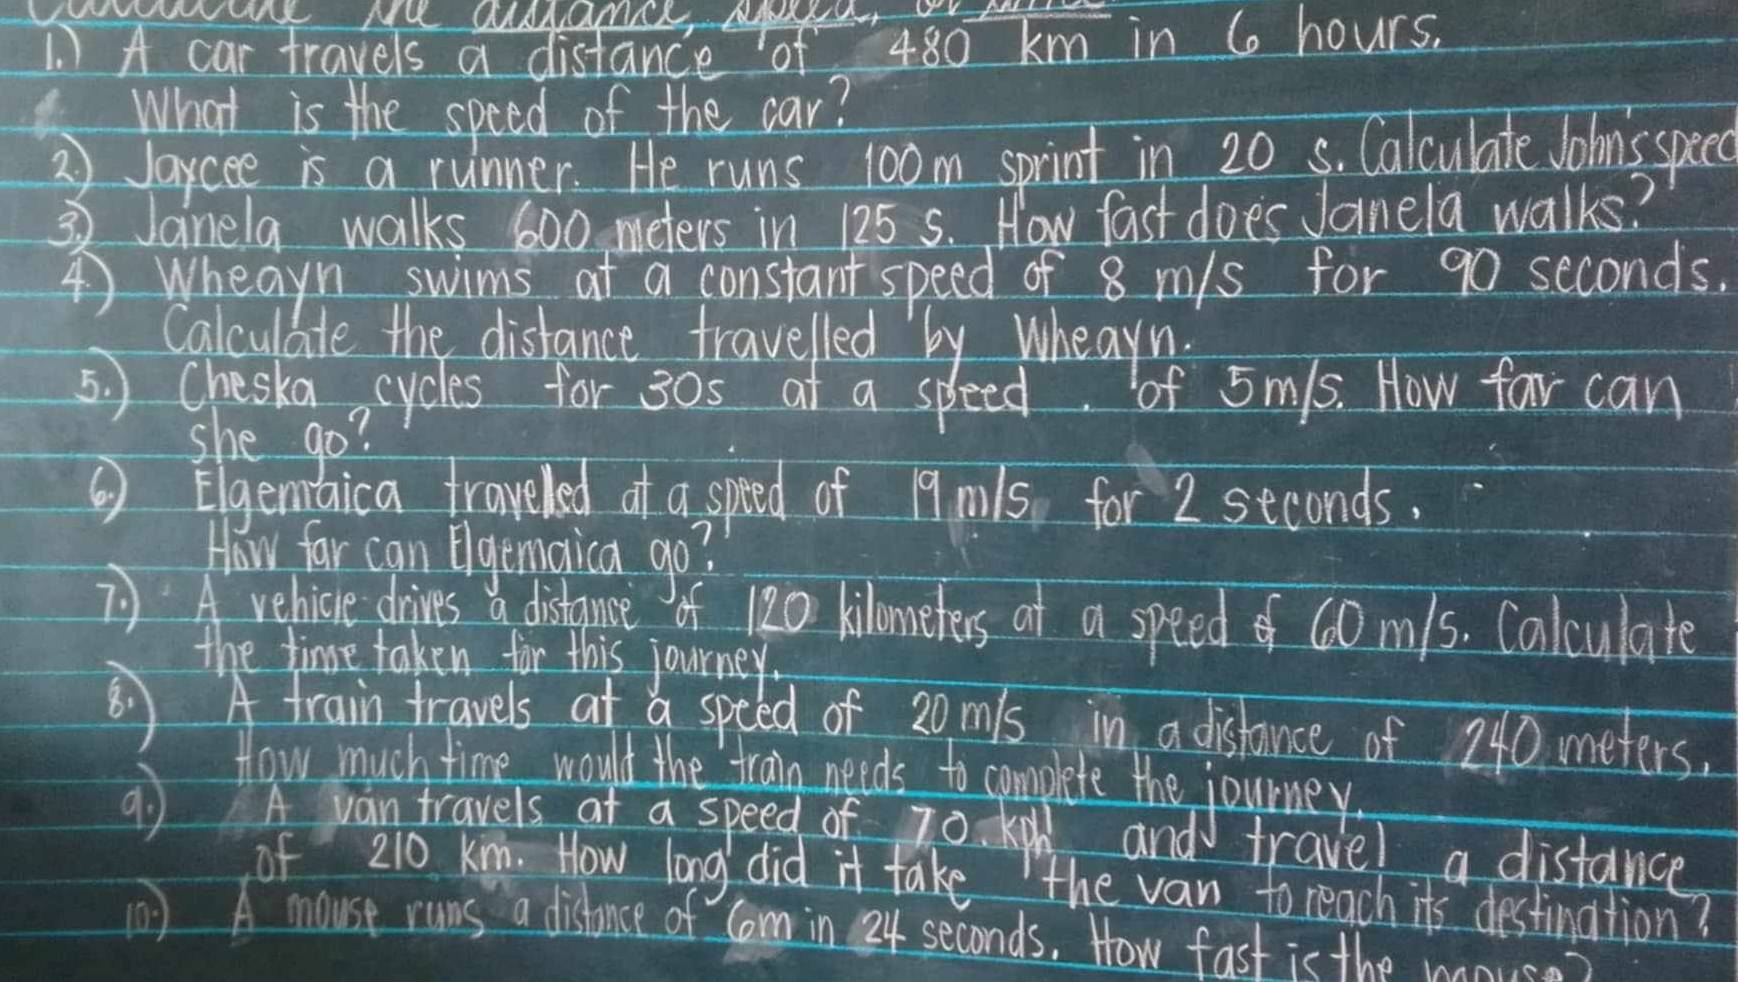 Calculate the distance, speed, or time
1.) A car travels a distance of 480 km in 6 hours.
What is the speed of the car?
2.) Jaycee is a runner. He runs 100m sprint in 20 s. Calculate John's speed
3.) Janela walks 600 meters in 125 s. How fast does Janela walks?
4.) Wheayn swims at a constant speed of 8 m/s for 90 seconds.
Calculate the distance travelled by Wheayn.
5.) Cheska cycles for 30s at a speed of 5m/s. How far can
she go?
6.) Elgemaica travelled at a speed of 19 m/s for 2 seconds.
How far can Elgemaica go?
7.) A vehicle drives a distance of 120 kilometers at a speed of 60 m/s. Calculate
the time taken for this journey.
8.) A train travels at a speed of 20 m/s in a distance of 240 meters.
How much time would the train needs to complete the journey.
9.) A van travels at a speed of 70 kph and travel a distance
of 210 km. How long did it take the van to reach its destination?
10.) A mouse runs a distance of 6m in 24 seconds. How fast is the mouse?